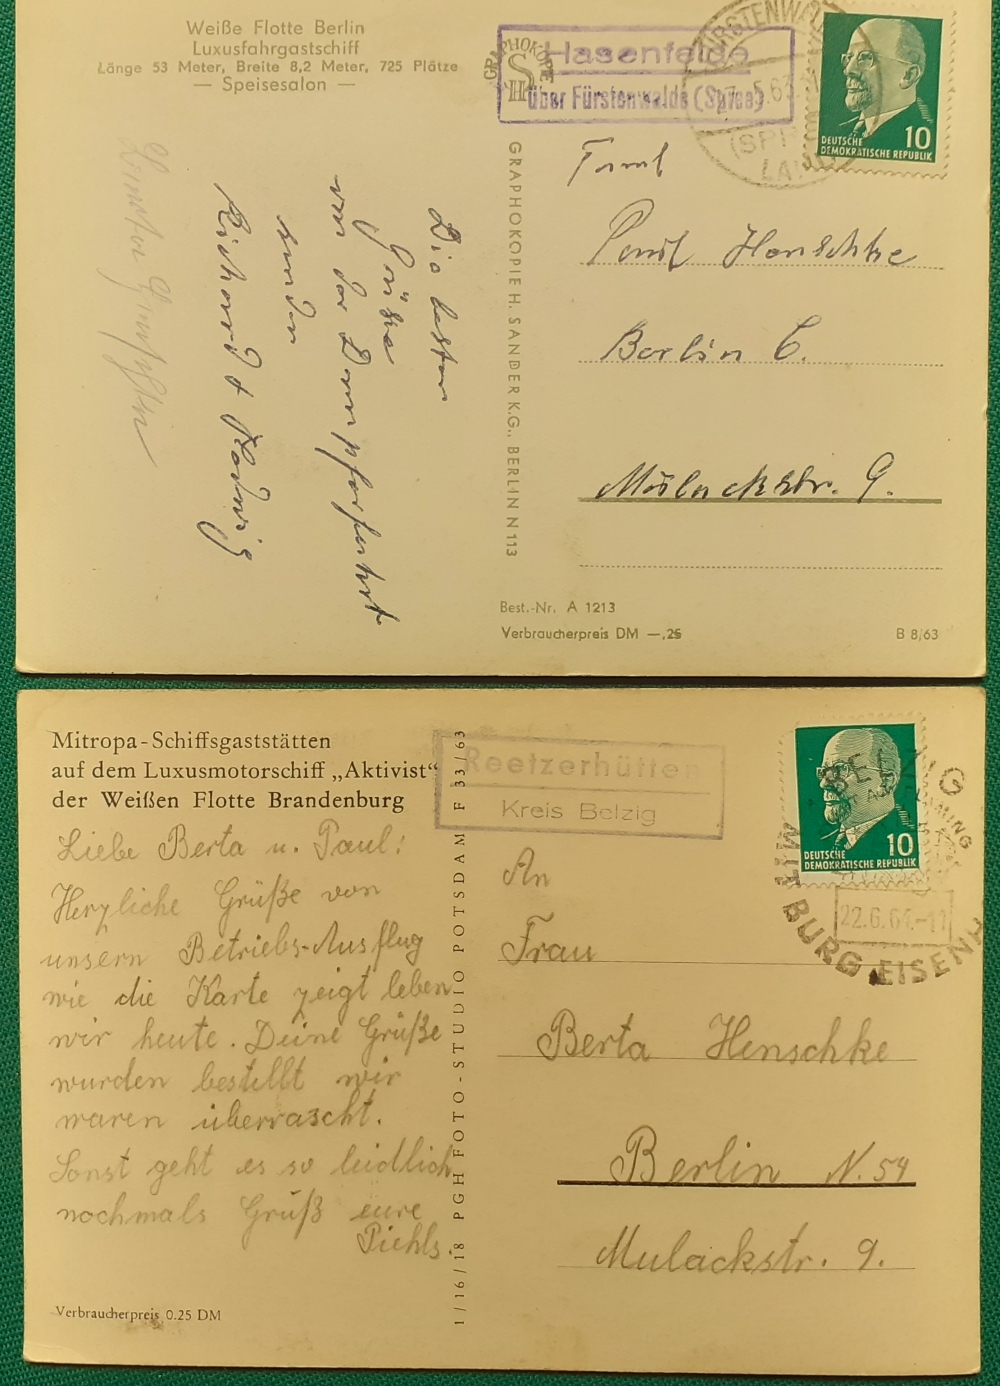 Weiße Flotte Berlin
Luxusfahrgastschiff
Länge 53 Meter, Breite 8,2 Meter, 725 Plätze
— Speisesalon —
GRAPHOKOPIE
H S
Hasenfelde
über Fürstenwalde (Spree)
FÜRSTENWALDE
5.63
(SPREE)
LAND
DEUTSCHE
DEMOKRATISCHE REPUBLIK
10
Die besten
Grüße
von der Dampferfahrt
senden
Richard & Hedwig
GRAPHOKOPIE H. SANDER K.G., BERLIN N 113
Faml
Paul Henschke
Berlin C.
Mulackstr. 9.
Best.-Nr. A 1213
Verbraucherpreis DM —,25
B 8/63
Mitropa-Schiffsgaststätten
auf dem Luxusmotorschiff „Aktivist“
der Weißen Flotte Brandenburg
Reetzerhütten
Kreis Belzig
DEUTSCHE
DEMOKRATISCHE REPUBLIK
10
BELZIG
FLÄMING
22.6.64.-11
MIT BURG EISENH
Liebe Berta u. Paul!
Herzliche Grüße von
unsern Betriebs-Ausflug
wie die Karte zeigt leben
wir heute. Deine Grüße
wurden bestellt wir
waren überrascht.
Sonst geht es so leidlich
nochmals Grüß eure
Piehls.
Verbraucherpreis 0.25 DM
1/16/18 PGH FOTO-STUDIO POTSDAM F 33/63
An
Frau
Berta Henschke
Berlin N. 54
Mulackstr. 9.